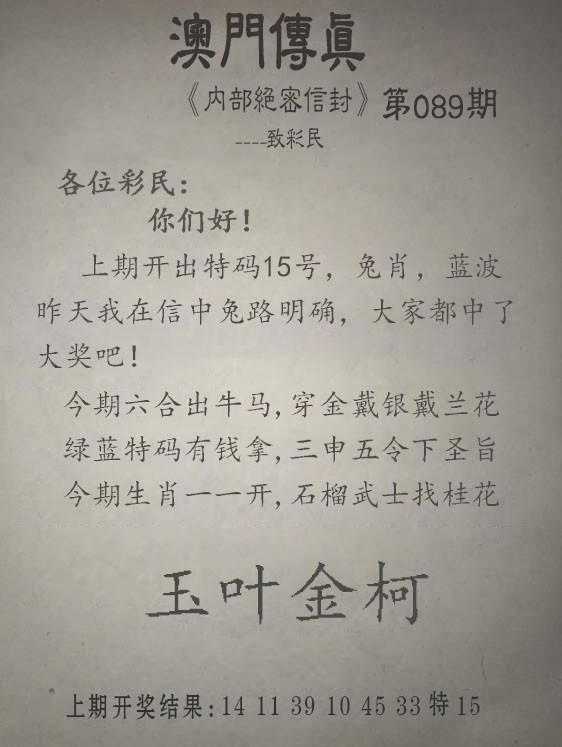 澳門傳真
《内部絕密信封》第089期
----致彩民
各位彩民：
你们好！
上期开出特码15号，兔肖，蓝波
昨天我在信中兔路明确，大家都中了
大奖吧！
今期六合出牛马,穿金戴银戴兰花
绿蓝特码有钱拿,三申五令下圣旨
今期生肖一一开,石榴武士找桂花
玉叶金柯
上期开奖结果:14 11 39 10 45 33 特 15